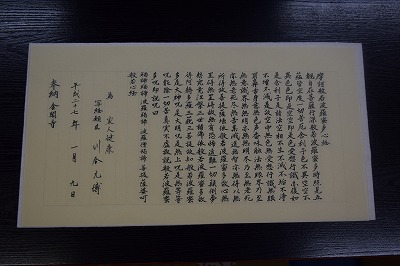 摩訶般若波羅蜜多心経
観自在菩薩行深般若波羅蜜多時照見五
蘊皆空度一切苦厄舎利子色不異空空不
異色色即是空空即是色受想行識亦復如
是舎利子是諸法空相不生不滅不垢不浄
不増不減是故空中無色無受想行識無眼
耳鼻舌身意無色声香味触法無眼界乃至
無意識界無無明亦無無明尽乃至無老死
亦無老死尽無苦集滅道無智亦無得以無
所得故菩提薩埵依般若波羅蜜多故心無
罣礙無罣礙故無有恐怖遠離一切顛倒夢
想究竟涅槃三世諸佛依般若波羅蜜多故
得阿耨多羅三藐三菩提故知般若波羅蜜
多是大神呪是大明呪是無上呪是無等等
呪能除一切苦真実不虚故説般若波羅蜜
多呪即説呪曰
羯諦羯諦 波羅羯諦 波羅僧羯諦 菩提薩婆訶
般若心経
為 家人健康
写経願主 川合元博
平成二十七年 一月 九日
奉納 金閣寺